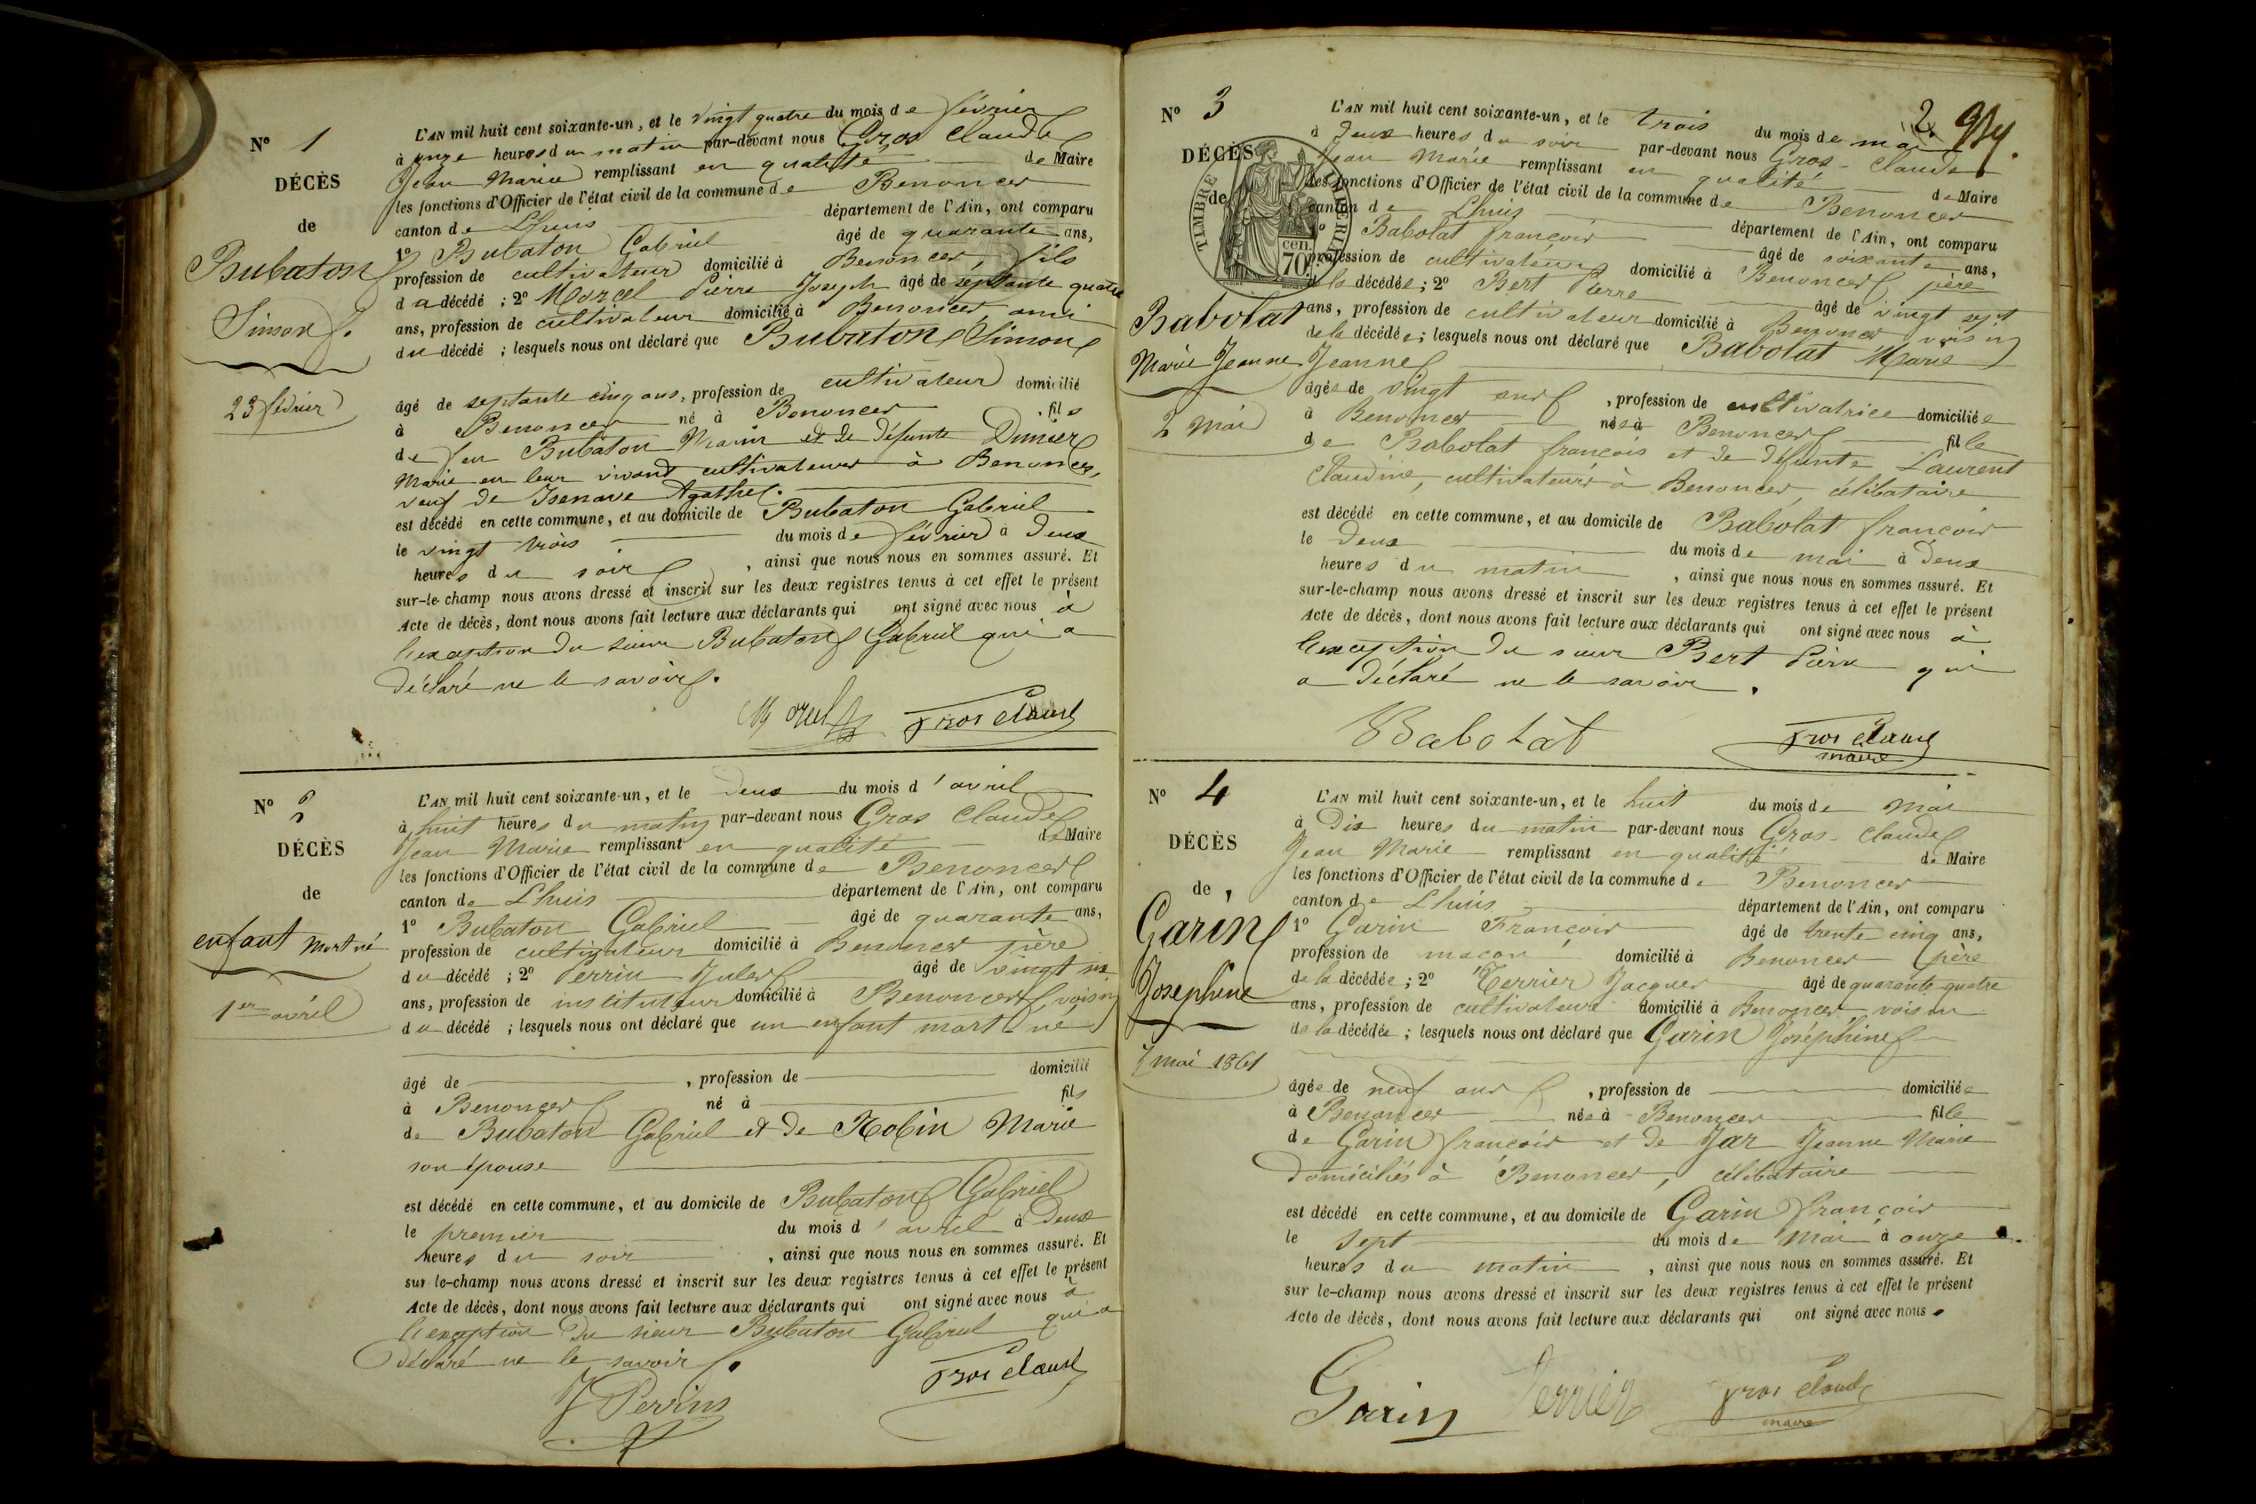 N° 1
DÉCÈS
de
Bubaton
Simon
23 février
L'AN mil huit cent soixante-un, et le vingt quatre du mois de février
à onze heures du matin par-devant nous Gros Claude
Jean Marie remplissant en qualité de Maire
les fonctions d'Officier de l'état civil de la commune de Benonces
canton de Lhuis département de l'Ain, ont comparu
1° Bubaton Gabriel âgé de quarante ans,
profession de cultivateur domicilié à Benonces, fils
du décédé ; 2° Morcel Pierre Joseph âgé de septante quatre
ans, profession de cultivateur domicilié à Benonces, ami
du décédé ; lesquels nous ont déclaré que Bubaton Simon
âgé de septante cinq ans, profession de cultivateur domicilié
à Benonces né à Benonces , fils
de feu Bubaton Marin et de défunte Dunier
Marie en leur vivant cultivateurs à Benonces,
veuf de Isenave Agathe.
est décédé en cette commune, et au domicile de Bubaton Gabriel
le vingt trois du mois de février à deux
heures du soir , ainsi que nous nous en sommes assuré. Et
sur-le-champ nous avons dressé et inscrit sur les deux registres tenus à cet effet le présent
Acte de décès, dont nous avons fait lecture aux déclarants qui ont signé avec nous à
l'exception du sieur Bubaton Gabriel qui a
déclaré ne le savoir.
gros claude
N° 2
DÉCÈS
de
enfant mort né
1er avril
L'AN mil huit cent soixante-un, et le deux du mois d'avril
à huit heures du matin par-devant nous Gros Claude
Jean Marie remplissant en qualité de Maire
les fonctions d'Officier de l'état civil de la commune de Benonces
canton de Lhuis département de l'Ain, ont comparu
1° Bubaton Gabriel âgé de quarante ans,
profession de cultivateur domicilié à Benonces père
du décédé ; 2° Perrin Jules âgé de vingt six
ans, profession de instituteur domicilié à Benonces, voisin
du décédé ; lesquels nous ont déclaré que un enfant mort né
âgé de , profession de domicilié
à Benonces né à fils
de Bubaton Gabriel et de Robin Marie
son épouse
est décédé en cette commune, et au domicile de Bubaton Gabriel
le premier du mois d'avril à deux
heures du soir , ainsi que nous nous en sommes assuré. Et
sur-le-champ nous avons dressé et inscrit sur les deux registres tenus à cet effet le présent
Acte de décès, dont nous avons fait lecture aux déclarants qui ont signé avec nous à
l'exception du sieur Bubaton Gabriel qui a
déclaré ne le savoir.
J Perrin
gros claude
2
N° 3
DÉCÈS
de
TIMBRE IMPÉRIAL
70 cen.
Babolat
Marie Jeanne
2 mai
L'AN mil huit cent soixante-un, et le trois du mois de mai
à deux heures du soir par-devant nous Gros-Claude
Jean Marie remplissant en qualité de Maire
les fonctions d'Officier de l'état civil de la commune de Benonces
canton de Lhuis département de l'Ain, ont comparu
1° Babolat françois âgé de soixante ans,
profession de cultivateur domicilié à Benonces père
de la décédée ; 2° Bert Pierre âgé de vingt sept
ans, profession de cultivateur domicilié à Benonces voisin
de la décédée ; lesquels nous ont déclaré que Babolat Marie
Jeanne
âgée de vingt ans , profession de cultivatrice domiciliée
à Benonces née à Benonces fille
de Babolat françois et de défunte Laurent
Claudine, cultivateurs à Benonces, célibataire
est décédé en cette commune, et au domicile de Babolat françois
le deux du mois de mai à deux
heures du matin , ainsi que nous nous en sommes assuré. Et
sur-le-champ nous avons dressé et inscrit sur les deux registres tenus à cet effet le présent
Acte de décès, dont nous avons fait lecture aux déclarants qui ont signé avec nous à
l'exception du sieur Bert Pierre qui
a déclaré ne le savoir.
Babolat
gros claude
maire
N° 4
DÉCÈS
de
Garin
Joséphine
7 mai 1861
L'AN mil huit cent soixante-un, et le huit du mois de Mai
à Dix heures du matin par-devant nous Gros-Claude
Jean Marie remplissant en qualité de Maire
les fonctions d'Officier de l'état civil de la commune de Benonces
canton de Lhuis département de l'Ain, ont comparu
1° Garin François âgé de trente cinq ans,
profession de maçon domicilié à Benonces père
de la décédée ; 2° Terrier Jacques âgé de quarante quatre
ans, profession de cultivateur domicilié à Benonces voisin
de la décédée ; lesquels nous ont déclaré que Garin Joséphine
âgée de neuf ans , profession de domiciliée
à Benonces née à Benonces fille
de Garin françois et de Jar Jeanne Marie
domiciliés à Benonces, célibataire
est décédé en cette commune, et au domicile de Garin françois
le sept du mois de Mai à onze
heures du matin , ainsi que nous nous en sommes assuré. Et
sur le-champ nous avons dressé et inscrit sur les deux registres tenus à cet effet le présent
Acte de décès, dont nous avons fait lecture aux déclarants qui ont signé avec nous.
Garin Terrier gros claude
maire